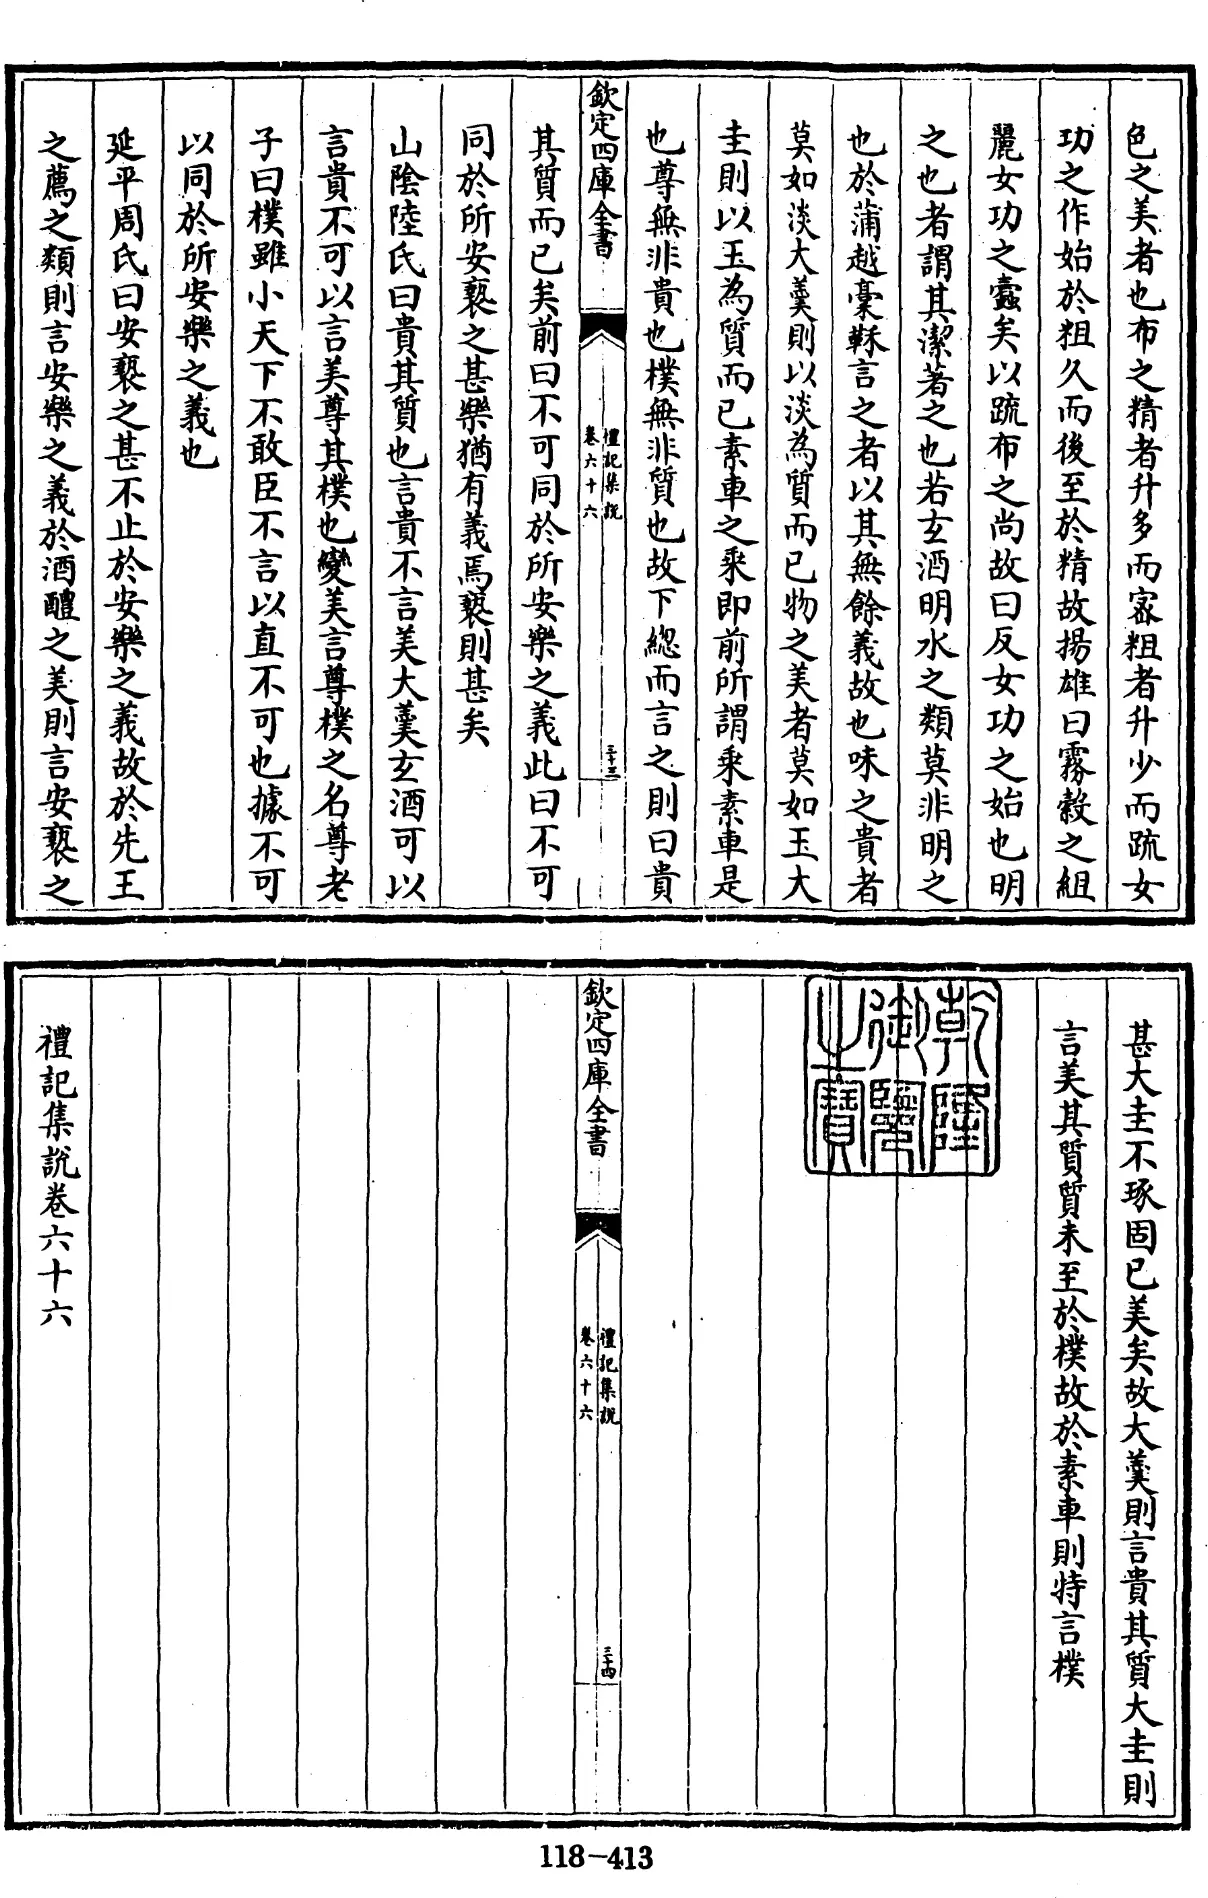 色之美者也布之精者升多而宻粗者升少而疏女
功之作始於粗久而後至於精故揚雄曰霧縠之組
麗女功之蠧矣以疏布之尚故曰反女功之始也明
之也者謂其潔著之也若玄酒明水之類莫非明之
也於蒲越稾鞂言之者以其無餘義故也味之貴者
莫如淡大羹則以淡為質而已物之美者莫如玉大
圭則以玉為質而已素車之乘即前所謂乘素車是
也尊無非貴也樸無非質也故下總而言之則曰貴
欽定四庫全書
禮記集說
卷六十六
三十三
其質而已矣前曰不可同於所安樂之義此曰不可
同於所安褻之甚樂猶有義焉褻則甚矣
山陰陸氏曰貴其質也言貴不言美大羹玄酒可以
言貴不可以言美尊其樸也變美言尊樸之名尊老
子曰樸雖小天下不敢臣不言以直不可也據不可
以同於所安樂之義也
延平周氏曰安褻之甚不止於安樂之義故於先王
之薦之類則言安樂之義於酒醴之美則言安褻之
甚大圭不琢固已美矣故大羹則言貴其質大圭則
言美其質質未至於樸故於素車則特言樸
乾隆
御覽
之寶
欽定四庫全書
禮記集說
卷六十六
三十四
禮記集說卷六十六
118-413